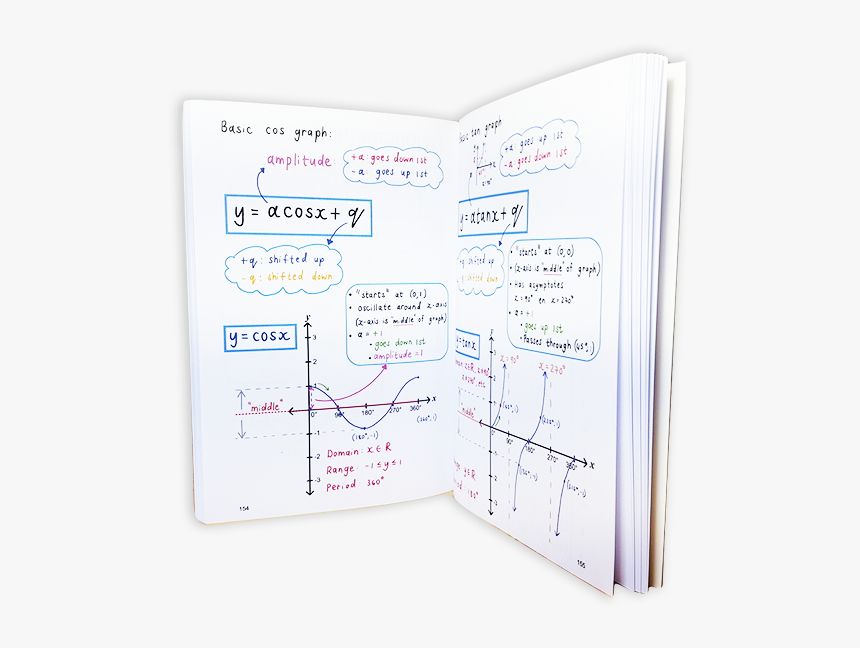 Basic cos graph:
amplitude
+a: goes down 1st
-a goes up 1st
y = acosx + q
+q: shifted up
-q: shifted down
• "starts" at (0,1)
• oscillate around x-axis
(x-axis is "middle" of graph)
• a = +1
• goes down 1st
• amplitude = 1
y = cosx
y
3
2
1
"middle"
0° 90° 180° 270° 360° x
(360°,1)
-1
(180°,-1)
-2
-3
Domain: x ∈ R
Range -1 ≤ y ≤ 1
Period 360°
154
Basic tan graph
+a goes up 1st
-a goes down 1st
y = atanx + q
+q shifted up
shifted down
• "starts" at (0,0)
• (x-axis is "middle" of graph)
• Has asymptotes
x = 90° en x = 270°
• a = +1
• goes up 1st
• Passes through (45°;1)
y = tanx
y
x = 90°
x = 270°
3
2
"middle"
0° 90° 180° 270° 360° x
-2
-3
y ∈ R
180°
155